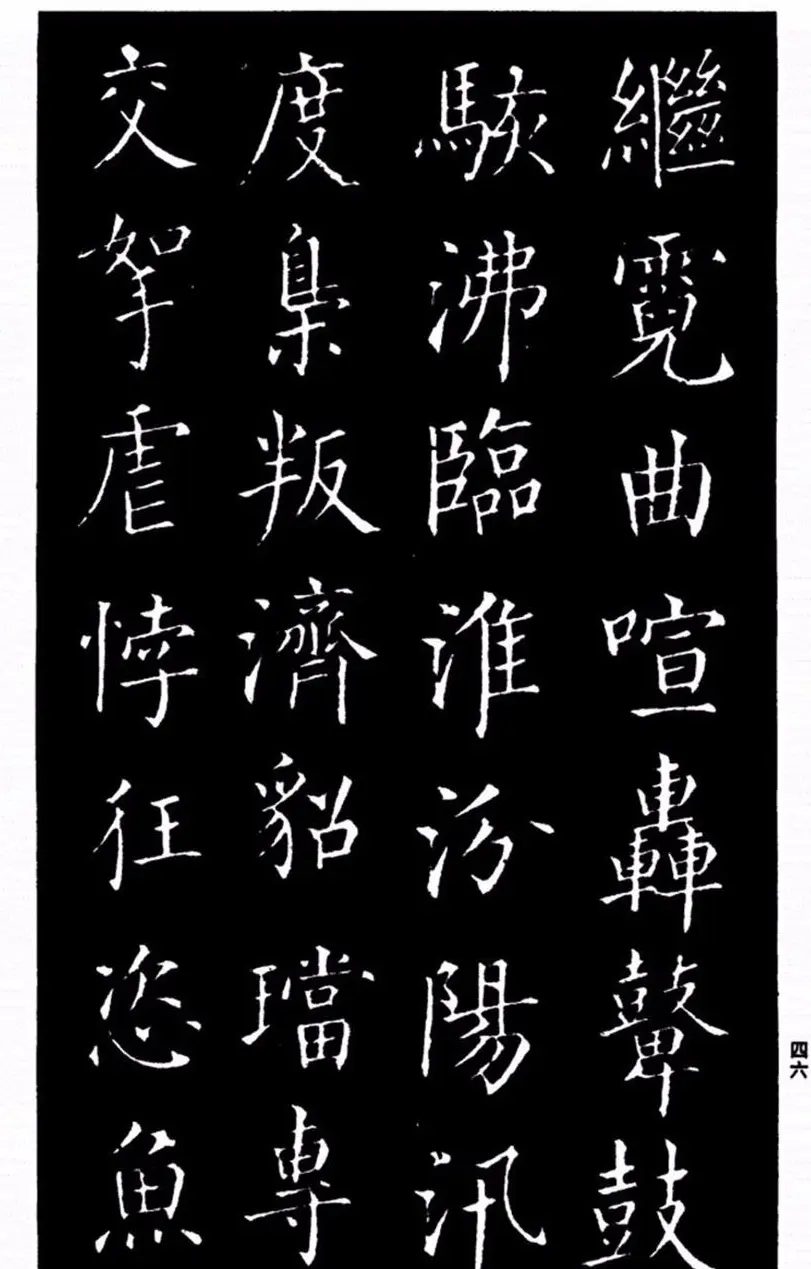 繼霓曲喧轟鼙鼓
駭沸臨淮汾陽汛
度梟叛濟貂璫專
交拏虐悖狂恣魚
四六